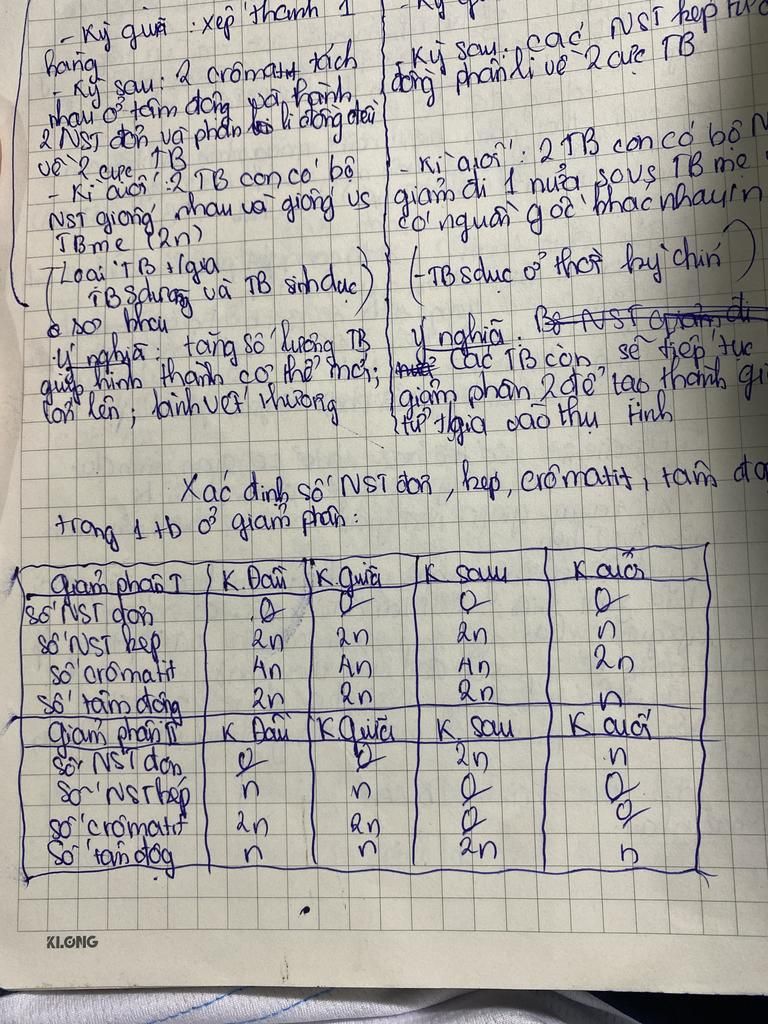 - Kỳ giữa : xếp thành 1
hàng
- Kỳ sau : 2 crômatit tách
nhau ở tâm động và thành
2 NST đơn và phân li đồng đều
về 2 cực TB
- Kì cuối : 2 TB con có bộ
NST giống nhau và giống vs
TB mẹ (2n)
Loại TB t/gia
TB Sdưỡng và TB sinh dục
sơ khai
Ý nghĩa : tăng số lượng TB
giúp hình thành cơ thể mới;
lớn lên ; lành vết thương
- Kỳ sau : các NST kép
đồng phân li về 2 cực TB
- Kì cuối : 2 TB con có bộ N
giảm đi 1 nửa so vs TB mẹ
có nguồn gốc khác nhau
(-TB Sdục ở thời kỳ chín)
Ý nghĩa : Bộ NST giảm đi
các TB con sẽ tiếp tục
giảm phân 2 để tạo thành gi
tử t/gia vào thụ tinh
Xác định số NST đơn, kép, crômatit, tâm độ
trong 1 tb ở giảm phân :
Giảm phân I K. Đầu K. Giữa K sau K cuối
Số NST đơn 0 0 0 0
Số NST kép 2n 2n 2n n
Số crômatit 4n 4n 4n 2n
Số tâm động 2n 2n 2n n
Giảm phân II K Đầu K Giữa K sau K cuối
Số NST đơn 0 0 2n n
Số NST kép n n 0 0
Số crômatit 2n 2n 0 0
Số tâm độg n n 2n n
KLONG